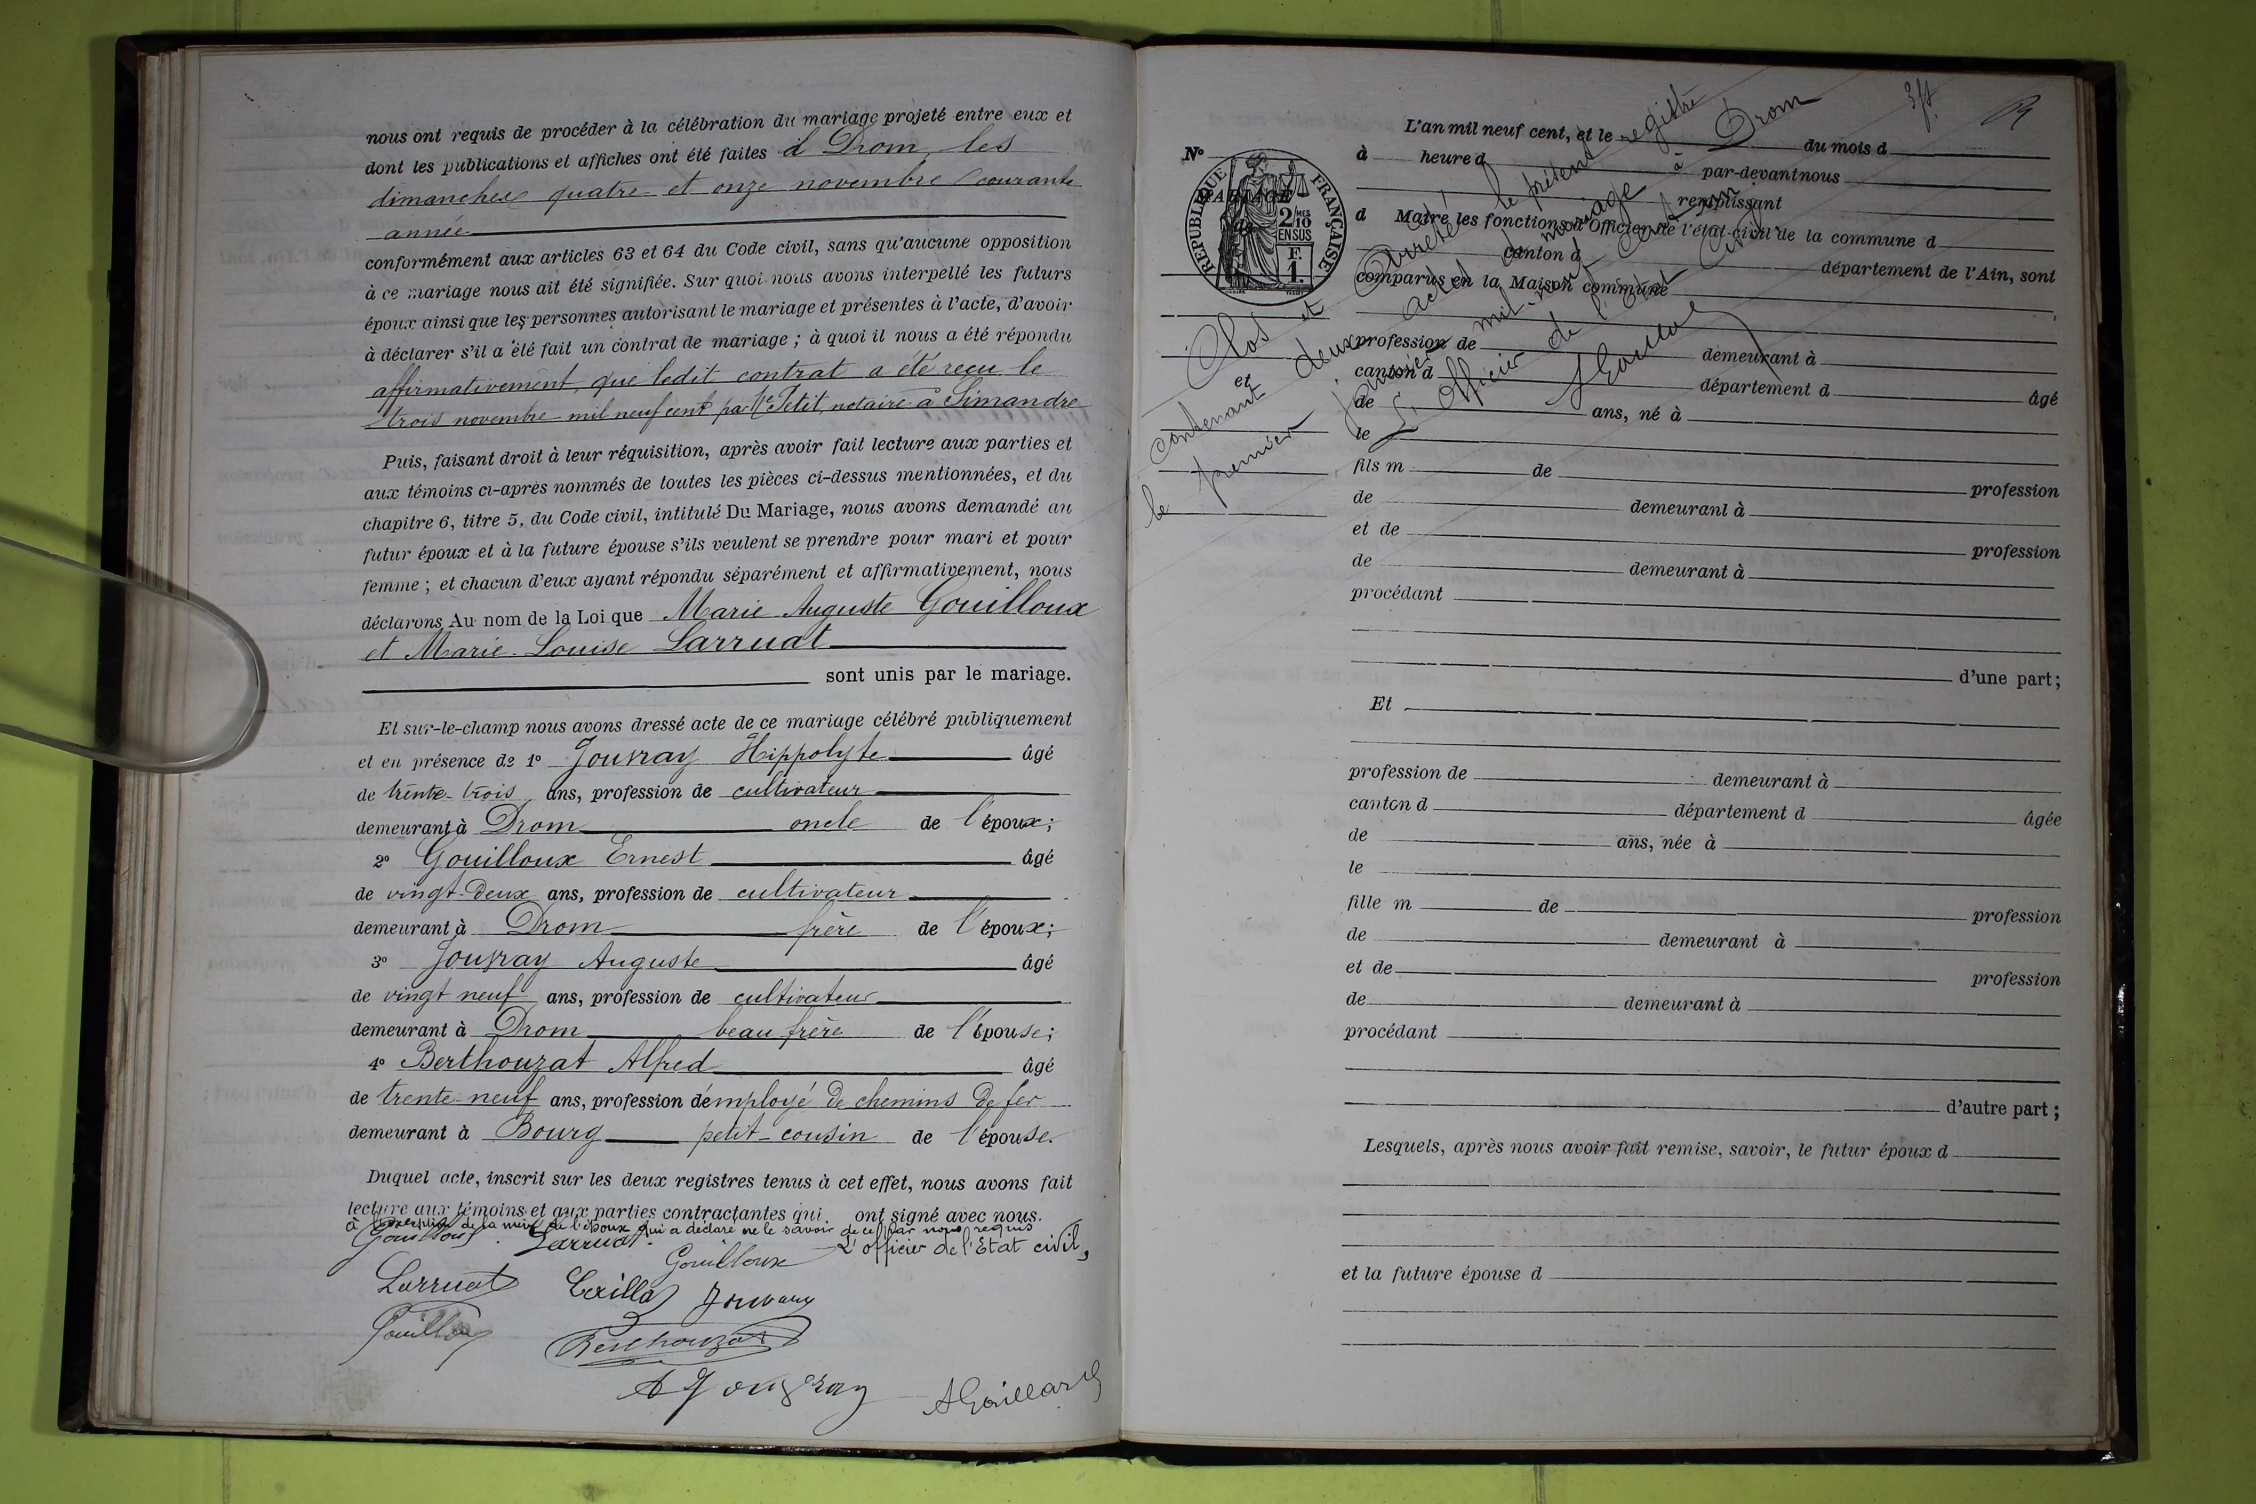 nous ont requis de procéder à la célébration du mariage projeté entre eux et
dont les publications et affiches ont été faites à Drom, les
dimanches quatre et onze novembre courante
année
conformément aux articles 63 et 64 du Code civil, sans qu'aucune opposition
à ce mariage nous ait été signifiée. Sur quoi nous avons interpellé les futurs
époux ainsi que les personnes autorisant le mariage et présentes à l'acte, d'avoir
à déclarer s'il a été fait un contrat de mariage ; à quoi il nous a été répondu
affirmativement, que ledit contrat a été reçu le
trois novembre mil neuf cent par Me Petit, notaire à Simandre
Puis, faisant droit à leur réquisition, après avoir fait lecture aux parties et
aux témoins ci-après nommés de toutes les pièces ci-dessus mentionnées, et du
chapitre 6, titre 5, du Code civil, intitulé Du Mariage, nous avons demandé au
futur époux et à la future épouse s'ils veulent se prendre pour mari et pour
femme ; et chacun d'eux ayant répondu séparément et affirmativement, nous
déclarons Au nom de la Loi que Marie Auguste Gouilloux
et Marie-Louise Larruat
sont unis par le mariage.
Et sur-le-champ nous avons dressé acte de ce mariage célébré publiquement
et en présence de 1° Jouvray Hippolyte âgé
de trente-trois ans, profession de cultivateur
demeurant à Drom oncle de l'époux;
2° Gouilloux Ernest âgé
de vingt-deux ans, profession de cultivateur
demeurant à Drom frère de l'époux;
3° Jouvray Auguste âgé
de vingt neuf ans, profession de cultivateur
demeurant à Drom beau frère de l'épouse;
4° Berthouzat Alfred âgé
de trente-neuf ans, profession d'employé de chemins de fer
demeurant à Bourg petit-cousin de l'épouse.
Duquel acte, inscrit sur les deux registres tenus à cet effet, nous avons fait
lecture aux témoins et aux parties contractantes qui ont signé avec nous.
à l'exception de la mère de l'époux qui a déclaré ne le savoir de ce par nous requis
Gouilloux Larruat L'officier de l'Etat civil,
Gouilloux
Larruat Jouvray
Gouilloux Berthouzat
A Jouvray AGaillard
N°
REPUBLIQUE FRANÇAISE
2/10 MES
EN SUS
F.
1.
L'an mil neuf cent, et le du mois d
à heure d par-devant nous
remplissant
d Maire les fonctions d'Officier de l'état-civil de la commune d
canton d département de l'Ain, sont
comparus en la Maison commune
profession de demeurant à
canton d département d âgé
de ans, né à
le
fils m de profession
de demeurant à
et de profession
de demeurant à
procédant
d'une part;
Et
profession de demeurant à
canton d département d âgée
de ans, née à
le
fille m de profession
de demeurant à
et de profession
de demeurant à
procédant
d'autre part;
Lesquels, après nous avoir fait remise, savoir, le futur époux d
et la future épouse d
Clos et Arrêté le présent registre
contenant deux actes de mariage à Drom
le premier janvier mil-neuf-cent-un
L'Officier de l'Etat Civil